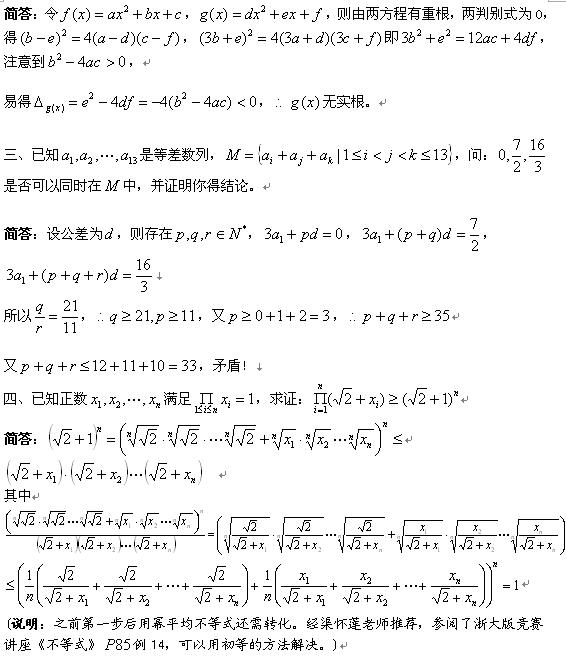 简答：令 f(x)=ax²+bx+c，g(x)=dx²+ex+f，则由两方程有重根，两判别式为 0，
得(b−e)²=4(a−d)(c−f)，(3b+e)²=4(3a+d)(3c+f)即3b²+e²=12ac+4df，
注意到b²−4ac>0，
易得Δ_{g(x)}=e²−4df=−4(b²−4ac)<0，∴ g(x)无实根。
三、已知a₁,a₂,⋯,a₁₃是等差数列，M={a_i+a_j+a_k|1≤i<j<k≤13}，问：0,7/2,16/3
是否可以同时在M中，并证明你得结论。
简答：设公差为d，则存在p,q,r∈N*，3a₁+pd=0，3a₁+(p+q)d=7/2，
3a₁+(p+q+r)d=16/3
所以q/r=21/11，∴q≥21,p≥11，又p≥0+1+2=3，∴p+q+r≥35
又p+q+r≤12+11+10=33，矛盾！
四、已知正数x₁,x₂,⋯,x_n满足∏_{1≤i≤n}x_i=1，求证：∏_{i=1}^{n}(√2+x_i)≥(√2+1)^n
简答：(√2+1)^n=(ⁿ√√2·ⁿ√√2·⋯ⁿ√√2+ⁿ√x₁·ⁿ√x₂⋯ⁿ√x_n)^n≤
(√2+x₁)·(√2+x₂)⋯(√2+x_n)
其中
(ⁿ√√2·ⁿ√√2⋯ⁿ√√2+ⁿ√x₁·ⁿ√x₂⋯ⁿ√x_n)^n/((√2+x₁)(√2+x₂)⋯(√2+x_n))=(ⁿ√(√2/(√2+x₁))·ⁿ√(√2/(√2+x₂))⋯ⁿ√(√2/(√2+x_n))+ⁿ√(x₁/(√2+x₁))·ⁿ√(x₂/(√2+x₂))⋯ⁿ√(x_n/(√2+x_n)))^n
≤(1/n(√2/(√2+x₁)+√2/(√2+x₂)+⋯+√2/(√2+x_n))+1/n(x₁/(√2+x₁)+x₂/(√2+x₂)+⋯+x_n/(√2+x_n)))^n=1
（说明：之前第一步后用幂平均不等式还需转化。经渠怀莲老师推荐，参阅了浙大版竞赛
讲座《不等式》P85例 14，可以用初等的方法解决。）